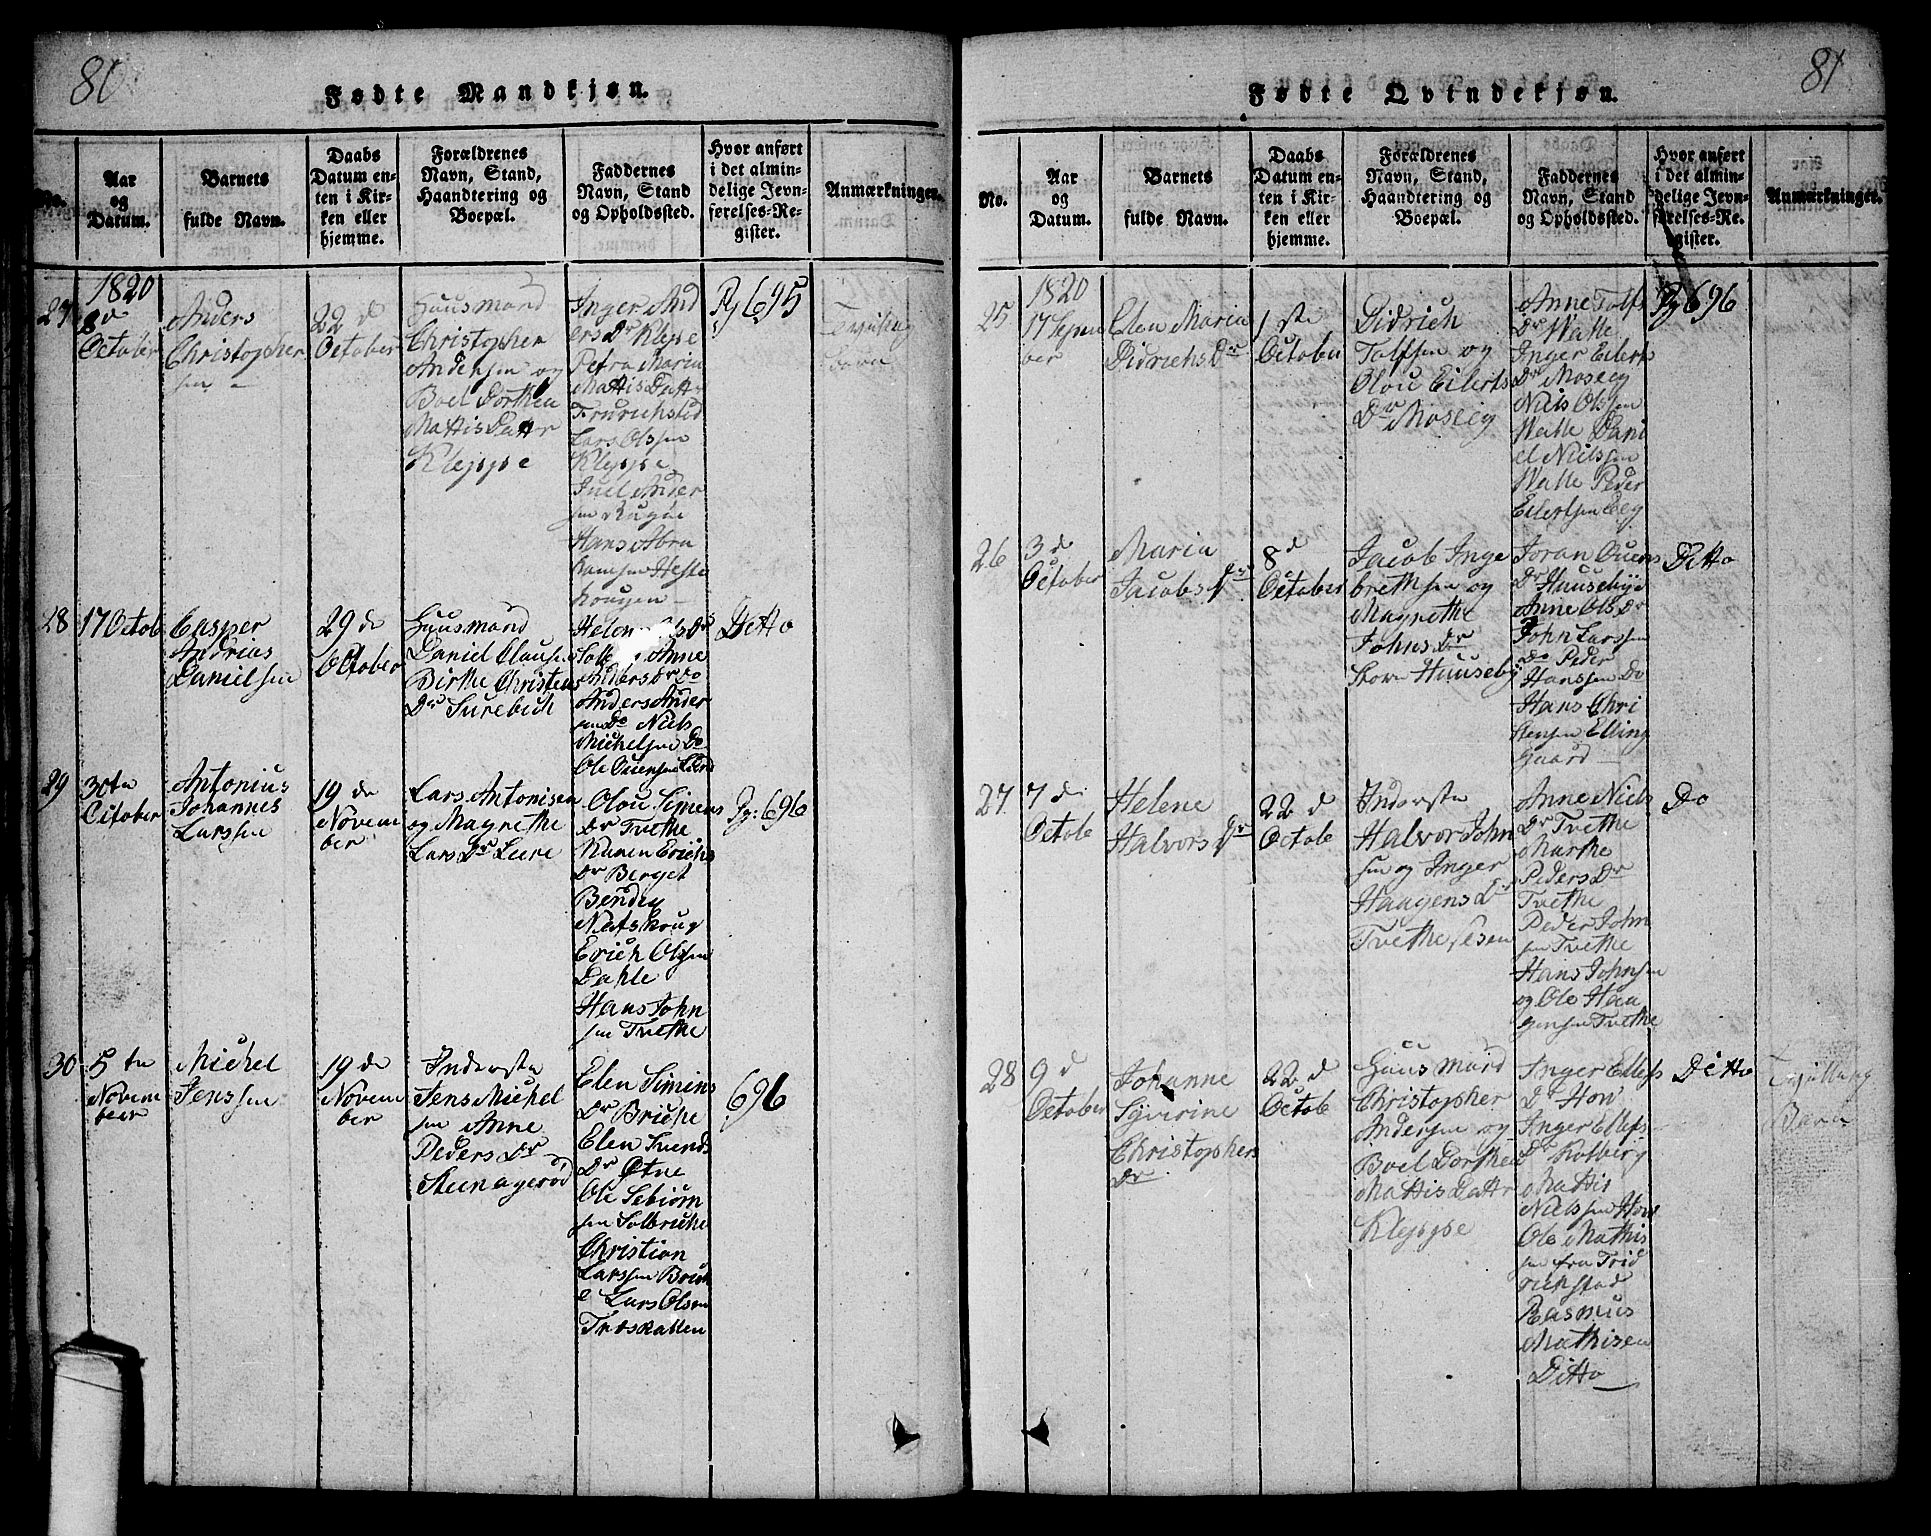 80
Fødte Mandkjøn.
No.
Aar
og
Datum.
Barnets
fulde Navn.
Daabs
Datum en-
ten i Kir-
ken eller
hjemme.
Forældrenes
Navn, Stand,
Haandtering og
Boepæl.
Faddernes
Navn, Stand
og Opholdssted.
Hvor anført
i det almin-
delige Jevn-
førelses-Re-
gister.
Anmærkninger.
27
1820
8d
October
Anders
Christopher
sen
22 d
October
Huusmand
Christopher
Andersen og
Boel Dorthea
Mattis Dattr
Kleppe
Inger And
ers Dr Kleppe
Petra Maria
Mattis Datt
Lars Olssen
Kleppe
Juel Ander
sen
Hans Abra
hamsen Heste
hougen
Pg 695
28
17 Octob
Casper
Andrias
Daniel sen
29 de
October
Huusmand
Daniel Clausen
Birthe Christens
Dr Surebuch
Anne
Anders Dr Do
Anders Ander
sen Do Niels
Michelsen Do
Ole Ouensen
Ditto
29
30te
October
Antonius
Johannes
Larssen
19 de
Novem
ber
Lars Antonisen
og Magrethe
Lars Dr Leere
Olou Simens
Dr Tvethe
Karen Erichs
Dr Berget
Bendix
Natskoug
Erich Olssen
Dahle
Hans John
sen Tvethe
Pg: 696
30
5 te
Novem
beer
Michel
Jenssen
19 de
Novem
ber
Inderste
Jens Michel
sen Anne
Peders Dr
Steenagerød
Elen Simins
Dr Bruhe
Elen Svends
Dr Øtne
Ole Sebiørn
sen Solbruche
Christian
Larssen Bruh
e Lars Olsen
Træskallen
696
81
Fødte Qvindekjøn.
No.
Aar
og
Datum.
Barnets
fulde Navn.
Daabs
Datum en-
ten i Kir-
ken eller
hjemme.
Forældrenes
Navn, Stand,
Haandtering og
Boepæl.
Faddernes
Navn, Stand
og Opholdssted.
Hvor anført
i det almin-
delige Jevn-
førelses-Re-
gister.
Anmærkninger.
25
1820
17 Septem
ber
Elen Maria
Didrichs Dr
1 ste
October
Didrich
Tolfsen og
Olou Eilerts
Dr Moseig
Anne Tolfs
Dr Walle
Inger Eilerts
Dr Moseig
Niels Olssen
Walle Dani
el Nielssen
Walle Peder
Eilertsen Eeg
Pg 696
26
3 d
October
Maria
Jacobs Dr
8 d
October
Jacob Inge
brethsen og
Magrethe
Johns Dr
Store Huuseby
Joran Ouens
Dr Huusebye
Anne Ols Dr
John Larssen
Do Peder
Hanssen Do
Hans Chri
stensen Elling
gaard
Ditto
27
7 d
Octob
Helene
Halvors Dr
22 d
Octobe
Inderste
Halvor John
sen og Inger
Haagens Dr
Tvethe Eien
Anne Niels
Dr Tvethe
Marthe
Peders Dr
Tvethe
Peder John
sen Tvethe
Hans Johnsen
og Ole Haa
gensen Tvethe
Do
28
9 d
October
Johanne
Syverine
Christophers
Dr
22 d
Octob
Huusmand
Christopher
Andersen og
Boel Dorthea
Mattis Dattr
Kleppe
Inger Ellefs
Dr How
Inger Ellefs
Dr Kolberg
Mattis
Nielssen How
Ole Mathis
sen fra Frid
richstad
Rasmus
Mathisen
Ditto
Ditto
Tvilling
Børn